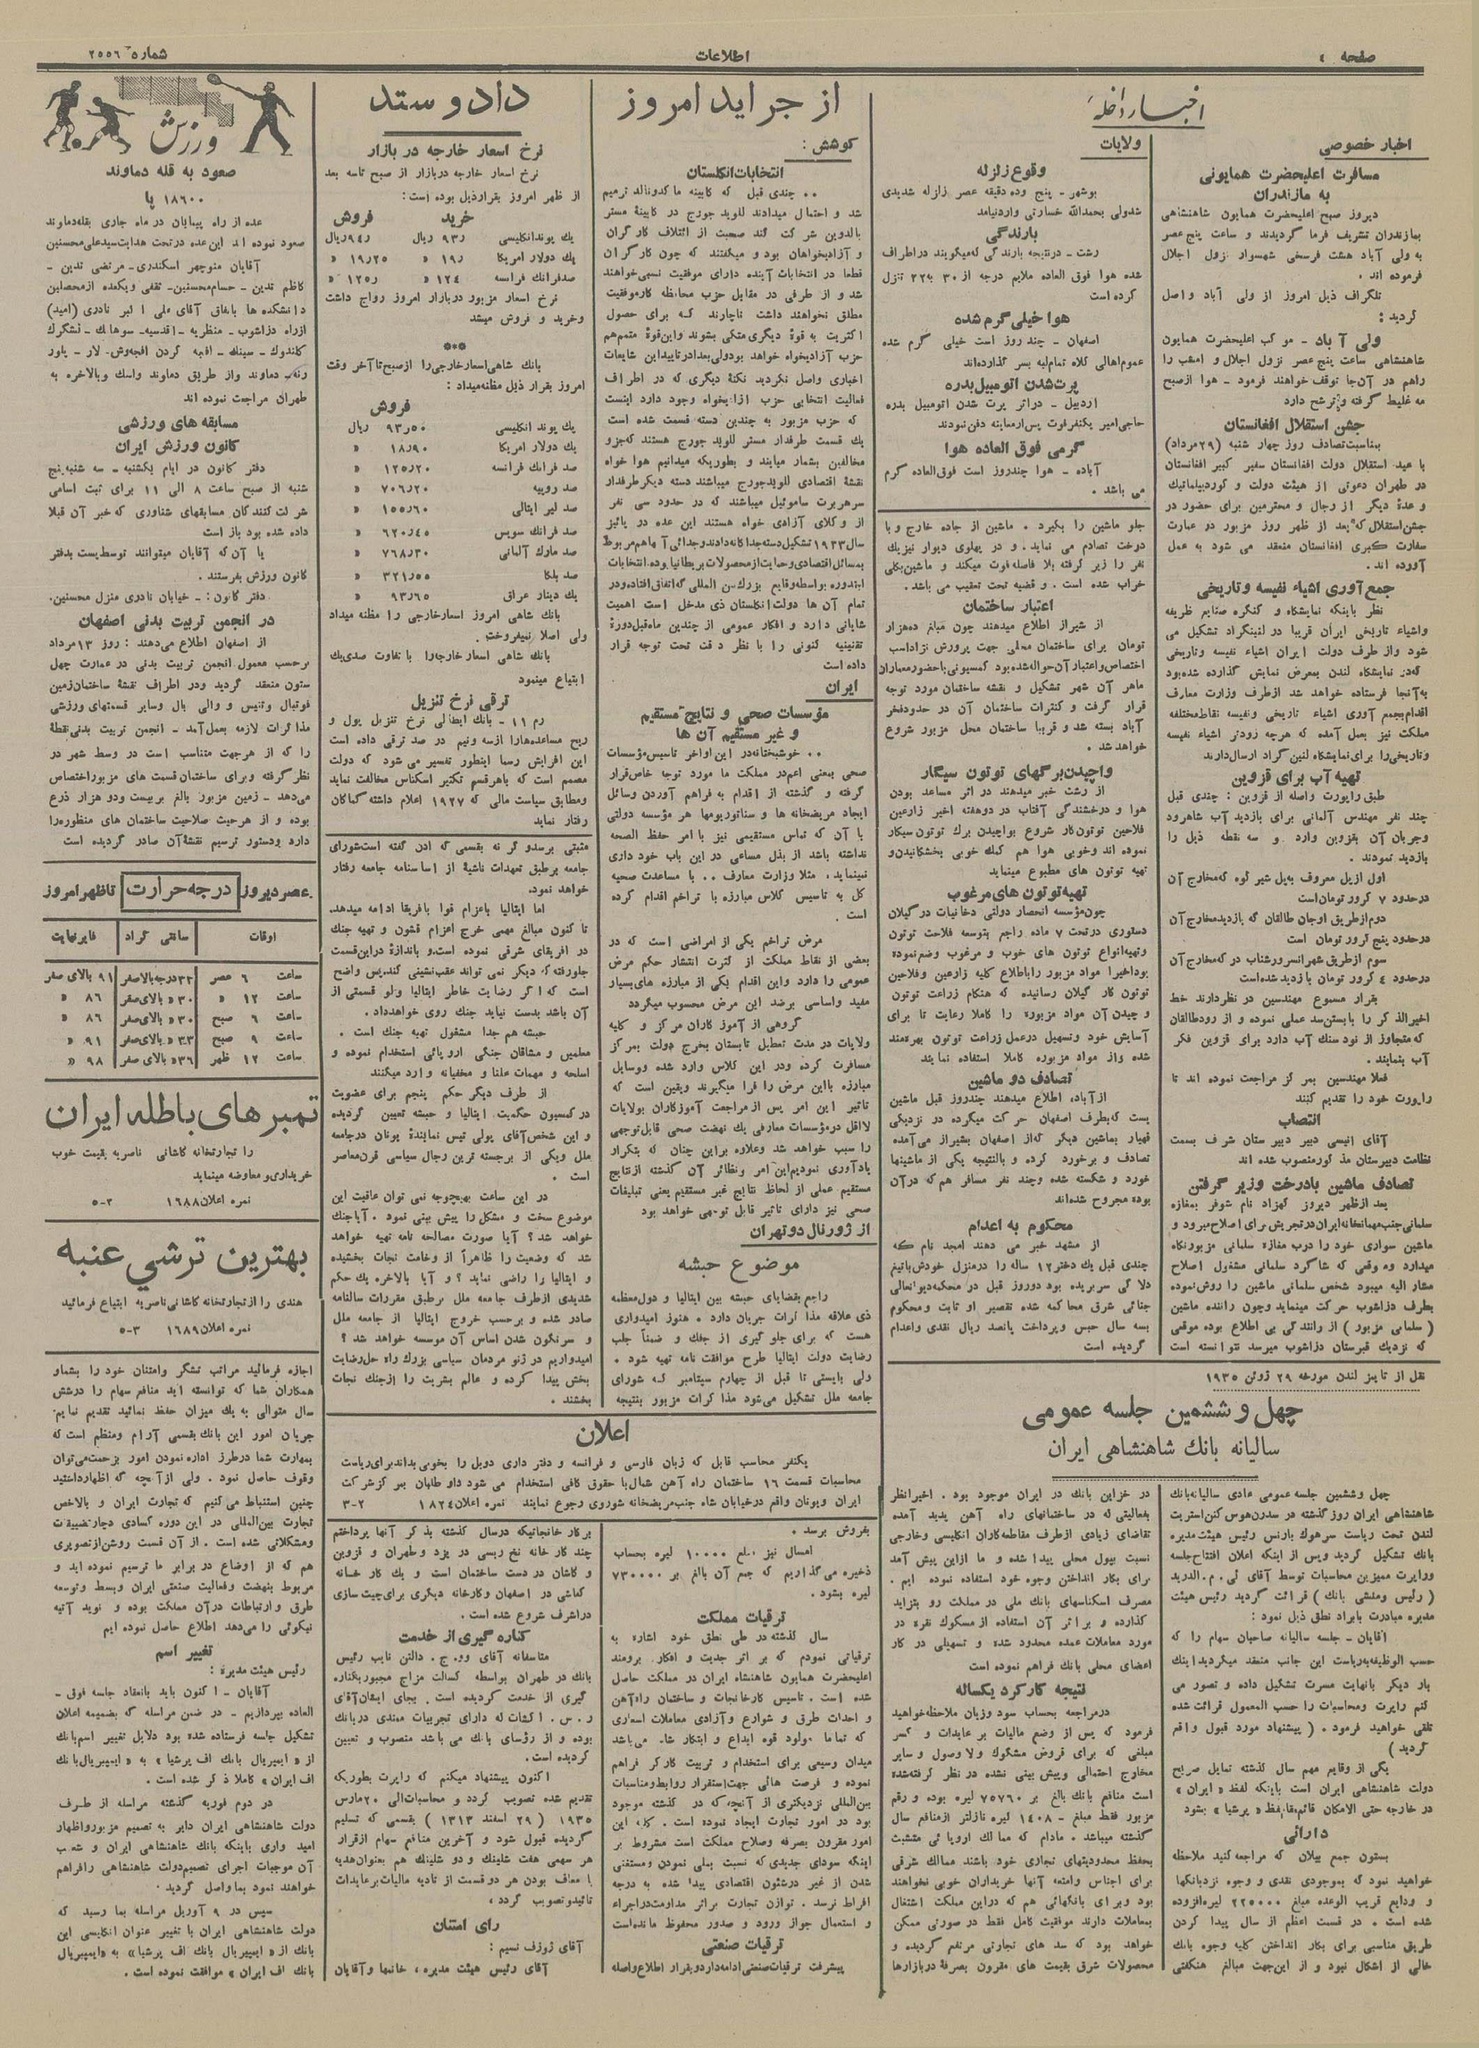 صفحه ٤
اطلاعات
شماره ٢٥٥٦
اخبار داخله
اخبار خصوصی
مسافرت اعلیحضرت همایونی
به مازندران
دیروز صبح اعلیحضرت همایون شاهنشاهی
بمازندران تشریف فرما گردیدند و ساعت پنج عصر
به ولی آباد هشت فرسخی شهسوار نزول اجلال
فرموده اند .
تلگراف ذیل امروز از ولی آباد واصل
گردید :
ولی آباد - موکب اعلیحضرت همایون
شاهنشاهی ساعت پنج عصر نزول اجلال و امشب را
راهم در آن‌جا توقف خواهند فرمود - هوا ازصبح
مه غلیظ گرفته وترشح دارد
جشن استقلال افغانستان
بمناسبت تصادف روز چهار شنبه (٢٩مرداد)
با عید استقلال دولت افغانستان سفیر کبیر افغانستان
در طهران دعوتی از هیئت دولت و کوردیپلماتیك
و عدهٔ دیگر از رجال و محترمین برای حضور در
جشن استقلال که بعد از ظهر روز مزبور در عمارت
سفارت کبری افغانستان منعقد می شود به عمل
آورده اند .
جمع آوری اشیاء نفیسه و تاریخی
نظر باینکه نمایشگاه و کنگره صنایع ظریفه
واشیاء تاریخی ایران قریبا در لنینگراد تشکیل می
شود واز طرف دولت ایران اشیاء نفیسه وتاریخی
که در نمایشگاه لندن بمعرض نمایش گذارده شده بود
به آنجا فرستاده خواهد شد ازطرف وزارت معارف
اقدام بجمع آوری اشیاء تاریخی ونفیسه نقاط مختلفه
مملکت نیز بعمل آمده که هرچه زودتر اشیاء نفیسه
وتاریخی را برای نمایشگاه لنین گراد ارسال دارند
تهیه آب برای قزوین
طبق راپورت واصله از قزوین : چندی قبل
چند نفر مهندس آلمانی برای بازدید آب شاهرود
وجریان آن بقزوین وارد و سه نقطه ذیل را
بازدید نمودند .
اول ازپل معروف به پل شیر کوه که مخارج آن
درحدود ٧ کرور تومان است
دوم ازطریق اوجان طالقان که بازدید مخارج آن
درحدود پنج کرور تومان است
سوم ازطریق شهراسنر ورشتاب در که مخارج آن
درحدود ٤ کرور تومان بازدید شده است
بقرار مسموع مهندسین در نظر دارند خط
اخیرالذکر را با بستن سد عملی نموده و از رود طالقان
که متجاوز از نود سنك آب دارد برای قزوین فکر
آب بنمایند .
فعلا مهندسین بمرکز مراجعت نموده اند تا
راپورت خود را تقدیم کنند
انتصاب
آقای انیسی دبیر دبیرستان شرف بسمت
نظامت دبیرستان مذکور منصوب شده اند
تصادف ماشین بادرخت وزیر گرفتن
بعد ازظهر دیروز کهزاد نام شوفر بمغازه
سلمانی جنب مهمانخانه ایران در تجریش برای اصلاح میرود و
ماشین سواری خود را درب مغازه سلمانی مزبور نگاه
میدارد وه وقعی که شاگرد سلمانی مشغول اصلاح
مشار الیه میبود شخص سلمانی ماشین را روش نموده
بطرف دزاشوب حرکت مینماید وچون راننده ماشین
( سلمانی مزبور ) از رانندگی بی اطلاع بوده موقعی
که نزدیك قبرستان دزاشوب میرسد نتوانسته است
ولایات
وقوع زلزله
بوشهر - پنج وده دقیقه عصر زلزله شدیدی
شد ولی بحمدالله خسارتی وارد نیامد
بارندگی
رشت - در نتیجه بارندگی که میگویند دراطراف
شده هوا فوق العاده ملایم درجه از ٣٠ به ٢٢ تنزل
کرده است
هوا خیلی گرم شده
اصفهان - چند روز است خیلی گرم شده
عموم اهالی کلاه تمام لبه بسر گذارده اند
پرت شدن اتومبیل بدره
اردبیل - دراثر پرت شدن اتومبیل بدره
حاجی امیر یکنفر فوت پس ازمعاینه دفن نمودند
گرمی فوق العاده هوا
آباده - هوا چندروز است فوق العاده گرم
می باشد .
جلو ماشین را بگیرد . ماشین از جاده خارج و با
درخت تصادم می نماید. و در پهلوی دیوار نیز یك
نفر را زیر گرفته بلا فاصله فوت میکند و ماشین بکلی
خراب شده است . و قضیه تحت تعقیب می باشد .
اعتبار ساختمان
از شیراز اطلاع میدهند چون مبلغ ده هزار
تومان برای ساختمان محلی جهت پرورش نژاد اسب
اختصاص و اعتبار آن حواله شده بود کمسیونی با حضور معماران
ماهر آن شهر تشکیل و نقشه ساختمان مورد توجه
قرار گرفت و کنترات ساختمان آن در حدود فخر
آباد بسته شد و قریبا ساختمان محل مزبور شروع
خواهد شد .
واچیدن برگهای توتون سیگار
از رشت خبر میدهند در اثر مساعد بودن
هوا و درخشندگی آفتاب در دوهفته اخیر زارعین
فلاحین توتون کار شروع بواچیدن برك توتون سیگار
نموده اند وخوبی هوا هم کمك خوبی بخشکانیدن و
تهیه توتون های مطبوع مینماید
تهیه توتون های مرغوب
چون مؤسسه انحصار دولتی دخانیات در گیلان
دستوری در تحت ٧ ماده راجع بتوسعه فلاحت توتون
وتهیه انواع توتون های خوب و مرغوب وضم نموده
بود اخیرا مواد مزبور را باطلاع کلیه زارعین وفلاحین
توتون کار گیلان رسانیده که هنگام زراعت توتون
و چیدن آن مواد مزبوره را کاملا رعایت تا برای
آسایش خود وتسهیل در عمل زراعت توتون بهره مند
شده واز مواد مزبوره کاملا استفاده نمایند
تصادف دو ماشین
از آباده اطلاع میدهند چندروز قبل ماشین
پست که بطرف اصفهان حرکت میکرده در نزدیکی
قهیار بماشین دیگر که از اصفهان بشیراز می آمده
تصادف و برخورد کرده و بالنتیجه یکی از ماشینها
خورد و شکسته شده وچند نفر مسافر هم که در آن
بوده مجروح شده اند
محکوم به اعدام
از مشهد خبر می دهند امجد نام که
چندی قبل یك دختر ١٢ ساله را در منزل خودش با تیغ
دلاکی سر بریده بود دوروز قبل در محکمه دیوانعالی
جنائی شرق محاکمه شده تقصیر او ثابت و محکوم
بسه سال حبس و پرداخت پانصد ریال نقدی واعدام
گردیده است
از جراید امروز
کوشش :
انتخابات انگلستان
. . چندی قبل که کابینه ماکدونالد ترمیم
شد و احتمال میدادند للوید جورج در کابینهٔ مستر
بالدوین شرکت کند صحبت از ائتلاف کارگران
و آزادیخواهان بود و میگفتند که چون کارگران
قطعا در انتخابات آینده دارای موفقیت نسبی خواهند
شد و از طرفی در مقابل حزب محافظه کار موفقیت
مطلق نخواهند داشت ناچارند که برای حصول
اکثریت به قوهٔ دیگری متکی بشوند واین قوهٔ متمم هم
حزب آزادیخواه خواهد بود ولی بعدا در تایید این شایعات
اخباری واصل نگردید نکتهٔ دیگری که در اطراف
فعالیت انتخابی حزب آزادیخواه وجود دارد اینست
که حزب مزبور به چندین دسته قسمت شده است
یك قسمت طرفدار مستر للوید جورج هستند که جزو
مخالفین بشمار میایند و بطوریکه میدانیم هوا خواه
نقشهٔ اقتصادی للوید جورج میباشند دسته دیگر طرفدار
سر هربرت ساموئیل میباشند که در حدود سی نفر
از وکلای آزادی خواه هستند این عده در پائیز
سال ١٩٣٣ تشکیل دسته جداگانه دادند وجدائی آنها هم مربوط
بمسائل اقتصادی وحمایت از محصولات بریطانیا بوده. انتخابات
ایندوره بواسطه وقایع بزرك بین المللی که اتفاق افتاده و در
تمام آن ها دولت انگلستان ذی مدخل است اهمیت
شایانی دارد و افکار عمومی از چندین ماه قبل دورهٔ
تقنینیه کنونی را با نظر دقت تحت توجه قرار
داده است
ایران
مؤسسات صحی و نتایج مستقیم
و غیر مستقیم آن ها
. . خوشبختانه در این اواخر تاسیس مؤسسات
صحی بمعنی اعم در مملکت ما مورد توجه خاص قرار
گرفته و گذشته از اقدام به فراهم آوردن وسائل
ایجاد مریضخانه ها و سناتوریومها هر مؤسسه دولتی
با آن که تماس مستقیمی نیز با امر حفظ الصحه
نداشته باشد از بذل مساعی در این باب خود داری
نمینماید. مثلا وزارت معارف . . با مساعدت صحیه
کل به تاسیس کلاس مبارزه با تراخم اقدام کرده
است .
مرض تراخم یکی از امراضی است که در
بعضی از نقاط مملکت از کثرت انتشار حکم مرض
عمومی را دارد واین اقدام یکی از مبارزه های بسیار
مفید واساسی برضد این مرض محسوب میگردد
گروهی از آموزکاران مرکز و کلیه
ولایات در مدت تعطیل تابستان بخرج دولت بمرکز
مسافرت کرده ودر این کلاس وارد شده ووسایل
مبارزه با این مرض را فرا میگیرند ویقین است که
تاثیر این امر پس از مراجعت آموزکاران بولایات
لااقل در مؤسسات معارفی یك نهضت صحی قابل توجهی
را سبب خواهد شد وعلاوه براین چنان که بتکرار
یادآوری نمودیم این امر ونظائر آن گذشته ازنتایج
مستقیم عملی از لحاظ نتایج غیر مستقیم یعنی تبلیغات
صحی نیز دارای تاثیر قابل توجهی خواهد بود
از ژورنال دو تهران
موضوع حبشه
راجع بقضایای حبشه بین ایتالیا و دول معظمه
ذی علاقه مذاکرات جریان دارد . هنوز امیدواری
هست که برای جلوگیری از جنك و ضمناً جلب
رضایت دولت ایتالیا طرح موافقت نامه تهیه شود .
ولی بایستی تا قبل از چهارم سپتامبر که شورای
جامعه ملل تشکیل می‌شود مذاکرات مزبور بنتیجه
داد و ستد
نرخ اسعار خارجه در بازار
نرخ اسعار خارجه در بازار از صبح تاسه بعد
از ظهر امروز بقرار ذیل بوده است :
خرید فروش
یك پوند انگلیسی ٩٣ر ریال ٩٤ر ریال
یك دولار امریکا ١٩ر « ١٩ر٢٥ «
صد فرانك فرانسه ١٢٤ « ١٢٥ر «
نرخ اسعار مزبور در بازار امروز رواج داشت
وخرید و فروش میشد
***
بانك شاهی اسعار خارجی را از صبح تا آخر وقت
امروز بقرار ذیل مظنه میداد :
فروش
یك پوند انگلیسی ٩٣ر٥٠ ریال
یك دولار امریکا ١٨ر٩٠ «
صد فرانك فرانسه ١٢٥ر٢٠ «
صد روپیه ٧٠٦ر٢٠ «
صد لیر ایتالی ١٥٥ر٦٠ «
صد فرانك سویس ٦٢٠ر٤٥ «
صد مارك آلمانی ٧٦٨ر٣٠ «
صد بلگا ٣٢١ر٥٥ «
یك دینار عراق ٩٣ر٦٥ «
بانك شاهی امروز اسعار خارجی را مظنه میداد
ولی اصلا نمیفروخت.
بانك شاهی اسعار خارجه را با تفاوت صدی یك
ابتیاع مینمود
ترقی نرخ تنزیل
رم ١١ - بانك ایطالی نرخ تنزیل پول و
ربح مساعده‌هارا ازسه ونیم در صد ترقی داده است
این افزایش رسما اینطور تفسیر می شود که دولت
مصمم است که باهرقسم تکثیر اسکناس مخالفت نماید
ومطابق سیاست مالی که ١٩٢٧ اعلام داشته کماکان
رفتار نماید
مثبتی برسد و گر نه بقسمی که ادن گفته است شورای
جامعه بر طبق تعهدات ناشیهٔ از اساسنامه جامعه رفتار
خواهد نمود.
اما ایتالیا باعزام قوا بافریقا ادامه میدهد.
تا کنون مبالغ مهمی خرج اعزام قشون و تهیه جنك
در افریقای شرقی نموده است. و باندازهٔ در این قسمت
جلو رفته که دیگر نمی تواند عقب‌نشینی کند. پس واضح
است که اگر رضایت خاطر ایتالیا ولو قسمتی از
آن باشد بدست نیاید جنك روی خواهد داد.
حبشه هم جدا مشغول تهیه جنك است .
معلمین و مشاقان جنگی اروپائی استخدام نموده و
اسلحه و مهمات علنا و مخفیانه وارد میکنند
از طرف دیگر حکم پنجم برای عضویت
در کمسیون حکمیت ایتالیا و حبشه تعیین گردیده
و این شخص آقای پولی تیس نمایندهٔ یونان در جامعه
ملل ویکی از برجسته ترین رجال سیاسی قرن معاصر
است .
در این ساعت بهیچوجه نمی توان عاقبت این
موضوع سخت و مشکل را پیش بینی نمود . آیا جنك
خواهد شد ؟ آیا صورت مصالحه نامه تهیه خواهد
شد که وضعیت را ظاهراً از وخامت نجات بخشیده
و ایتالیا را راضی نماید ؟ و آیا بالاخره یك حکم
شدیدی از طرف جامعه ملل بر طبق مقررات سالنامه
صادر شده و برحسب خروج ایتالیا از جامعه ملل
و سرنگون شدن اساس آن موسسه خواهد شد ؟
امیدواریم در ژنو مردمان سیاسی بزرك راه حل رضایت
بخش پیدا کرده و عالم بشریت را از جنك نجات
بخشند .
ورزش
صعود به قله دماوند
١٨٦٠٠ پا
عده از راه پیمایان در ماه جاری بقله دماوند
صعود نموده اند این عده در تحت هدایت سید علی محسنین
آقایان منوچهر اسکندری- مرتضی تدین -
کاظم تدین - حسام محسنین- ثقفی ویکعده از محصلین
دانشکده ها باتفاق آقای علی اکبر نادری (امید)
ازراه دزاشوب - منظریه - اقدسیه- سوهانك - لشگرك
کلندوك - سینك - افجه گردن افجه‌وش- لار - پاور
رنه- دماوند واز طریق دماوند واسك وبالاخره به
طهران مراجعت نموده اند
مسابقه های ورزشی
کانون ورزش ایران
دفتر کانون در ایام یکشنبه - سه شنبه پنج
شنبه از صبح ساعت ٨ الی ١١ برای ثبت اسامی
شرکت کنندگان مسابقهای شناوری که خبر آن قبلا
داده شده بود باز است
یا آن که آقایان میتوانند توسط پست بدفتر
کانون ورزش بفرستند .
دفتر کانون : - خیابان نادری منزل محسنین.
در انجمن تربیت بدنی اصفهان
از اصفهان اطلاع می‌دهند : روز ١٣ مرداد
برحسب معمول انجمن تربیت بدنی در عمارت چهل
ستون منعقد گردید ودر اطراف نقشهٔ ساختمان زمین
فوتبال وتنیس و والی بال وسایر قسمتهای ورزشی
مذاکرات لازمه بعمل آمد - انجمن تربیت بدنی نقطهٔ
را که از هرجهت متناسب است در وسط شهر در
نظر گرفته وبرای ساختمان قسمت های مزبور اختصاص
می‌دهد - زمین مزبور بالغ بر بیست ودو هزار ذرع
بوده و از هرحیث صلاحیت ساختمان های منظوره را
دارد ودستور ترسیم نقشهٔ آن صادر گردیده است
عصر دیروز درجه حرارت تاظهر امروز
اوقات سانتی گراد فارنهایت
ساعت ٦ عصر ٣٢ درجه بالاصفر ٩١ بالای صفر
ساعت ١٢ « ٣٠ « بالای صفر ٨٦ «
ساعت ٦ صبح ٣٠ « بالای صفر ٨٦ «
ساعت ٩ صبح ٣٣ « بالای صفر ٩١ «
ساعت ١٢ ظهر ٣٦ « بالای صفر ٩٨ «
تمبرهای باطله ایران
را تجارتخانه کاشانی ناصریه بقیمت خوب
خریداری و معاوضه مینماید
نمره اعلان ١٦٨٨ ٣-٥
بهترین ترشی عنبه
هندی را از تجارتخانه کاشانی ناصریه ابتیاع فرمائید
نمره اعلان ١٦٨٩ ٣-٥
اعلان
یکنفر محاسب قابل که زبان فارسی و فرانسه و دفتر داری دوبل را بخوبی بداند برای ریاست
محاسبات قسمت ١٦ ساختمان راه آهن شمال با حقوق کافی استخدام می شود داوطلبان بمرکز شرکت
ایران ویونان واقع در خیابان شاه جنب مریضخانه شوروی رجوع نمایند نمره اعلان ١٨٢٤ ٢-٣
نقل از تایمز لندن مورخه ٢٩ ژوئن ١٩٣٥
چهل و ششمین جلسه عمومی
سالیانه بانك شاهنشاهی ایران
چهل وششمین جلسه عمومی عادی سالیانه بانك
شاهنشاهی ایران روز گذشته در سدنهوس کنن استریت
لندن تحت ریاست سرهوك بارنس رئیس هیئت مدیره
بانك تشکیل گردید وپس از اینکه اعلان افتتاح جلسه
وراپرت ممیزین محاسبات توسط آقای ئی.م.الدرید
( رئیس ومنشی بانك ) قرائت گردید رئیس هیئت
مدیره مبادرت بایراد نطق ذیل نمود :
آقایان - جلسه سالیانه صاحبان سهام را که
حسب الوظیفه بریاست این جانب منعقد میگردید اینك
بار دیگر بانهایت مسرت تشکیل داده و تصور می
کنم راپرت ومحاسبات را حسب المعمول قرائت شده
تلقی خواهید فرمود . ( پیشنهاد مورد قبول واقع
گردید )
یکی از وقایع مهم سال گذشته تمایل صریح
دولت شاهنشاهی ایران است باینکه لفظ « ایران »
در خارجه حتی الامکان قائم مقام لفظ « پرشیا » بشود
دارائی
بستون جمع بیلان که مراجعه کنید ملاحظه
خواهید نمود که بموجودی نقدی و وجوه نزد بانکها
و ودایع قریب الوعده مبلغ ٢٢٥٠٠٠ لیره افزوده
شده است . در قسمت اعظم از سال پیدا کردن
طریق مناسبی برای بکار انداختن کلیه وجوه بانك
خالی از اشکال نبود و از این جهت مبالغ هنگفتی
در خزاین بانك در ایران موجود بود . اخیرانظر
بفعالیتی که در ساختمانهای راه آهن پدید آمده
تقاضای زیادی از طرف مقاطعه کاران انگلیسی وخارجی
نسبت بپول محلی پیدا شده و ما از این پیش آمد
برای بکار انداختن وجوه خود استفاده نموده ایم .
مصرف اسکناسهای بانك ملی در مملکت رو بتزاید
گذارده و براثر آن استفاده از مسکوك نقره در
مورد معاملات عمده محدود شده و تسهیلی در کار
اعضای محلی بانك فراهم نموده است
نتیجه کارکرد یکساله
در مراجعه بحساب سود وزیان ملاحظه خواهید
فرمود که پس از وضع مالیات بر عایدات و کسر
مبلغی که برای قروض مشکوك ولاوصول و سایر
مخارج احتمالی وپیش بینی نشده در نظر گرفته شده
است منافع بانك بالغ بر ٧٥٧٦٠ لیره بوده و رقم
مزبور فقط مبلغ ١٤٠٨ لیره نازلتر از منافع سال
گذشته میباشد . مادام که ممالك اروپائی متشبث
بحفظ محدودیتهای تجارتی خود باشند ممالك شرقی
برای اجناس وامتعه آنها خریداران خوبی نخواهند
بود وبرای بانکهائی هم که دراین مملکت اشتغال
بمعاملات دارند موفقیت کامل فقط در صورتی ممکن
خواهد بود که سد های تجارتی مرتفع گردیده و
محصولات شرق بقیمت های مقرون بصرفهٔ در بازارها
بفروش برسد .
امسال نیز مبلغ ١٠٠٠٠ لیره بحساب
ذخیره می گذاریم که جمع آن بالغ بر ٧٣٠٠٠٠
لیره بشود .
ترقیات مملکت
سال گذشته در طی نطق خود اشاره به
ترقیاتی نمودم که بر اثر جدیت و افکار برومند
اعلیحضرت همایون شاهنشاه ایران در مملکت حاصل
شده است . تاسیس کارخانجات و ساختمان راه آهن
و احداث طرق و شوارع وآزادی معاملات اسعاری
که تماما مولود قوه ابداع و ابتکار شاه می باشد
میدان وسیعی برای استخدام و تربیت کارگر فراهم
نموده و فرصت هائی جهت استقرار روابط ومناسبات
بین المللی نزدیکتری از آنچه که در گذشته موجود
بود در امور تجارت ایجاد نموده است . کلیه این
امور مقرون بصرفه وصلاح مملکت است مشروط بر
اینکه سودای جدیدی که نسبت بملی نمودن ومستغنی
شدن از غیر در شئون اقتصادی پیدا شده به درجه
افراط نرسد . توازن تجارت براثر مداومت در اجراء
و استعمال جواز ورود و صدور محفوظ مانده است
ترقیات صنعتی
پیشرفت ترقیات صنعتی ادامه دارد وبقرار اطلاع واصله
برکار خانجاتیکه در سال گذشته بذکر آنها پرداختم
چند کارخانه نخ ریسی در یزد وطهران و قزوین
و کاشان در دست ساختمان است و یك کار خانه
کفاشی در اصفهان وکارخانه دیگری برای چیت سازی
در اشرف شروع شده است .
کناره گیری از خدمت
متاسفانه آقای وو. ج. دالتن نایب رئیس
بانك در طهران بواسطه کسالت مزاج مجبور بکناره
گیری از خدمت گردیده است . بجای ایشان آقای
ر. س. اکشات که دارای تجربیات ممتدی در بانك
بوده و از رؤسای بانك می باشد منصوب و تعیین
گردیده است .
اکنون پیشنهاد میکنم که راپرت بطوریکه
تقدیم شده تصویب گردد و محاسبات الی ٢٠ مارس
١٩٣٥ ( ٢٩ اسفند ١٣١٣ ) بقسمی که تسلیم
گردیده قبول شود و آخرین منافع سهام از قرار
هر سهمی هفت شلینك و دو شلینك هم بعنوان هدیه
با معاف بودن هر دو قسمت از تادیه مالیات بر عایدات
تائید و تصویب گردد ،
رای امتنان
آقای ژوزف نسیم :
آقای رئیس هیئت مدیره ، خانمها و آقایان
اجازه فرمائید مراتب تشکر وامتنان خود را بشما و
همکاران شما که توانسته اید منافع سهام را در شش
سال متوالی به یك میزان حفظ نمائید تقدیم نمایم.
جریان امور این بانك بقسمی آرام ومنظم است که
بمهارت شما در طرز اداره نمودن امور بزحمت می توان
وقوف حاصل نمود . ولی ازآنچه که اظهار داشتید
چنین استنباط می کنیم که تجارت ایران و بالاخص
تجارت بین المللی در این دوره کسادی دچار تضییقات
ومشکلاتی شده است . از آن قسمت روشن از تصویری
هم که از اوضاع در برابر ما ترسیم نموده اید و
مربوط بنهضت وفعالیت صنعتی ایران وبسط وتوسعه
طرق وارتباطات در آن مملکت بوده و نوید آتیه
نیکوئی را می دهد اطلاع حاصل نموده ایم
تغییر اسم
رئیس هیئت مدیره :
آقایان - اکنون باید بانعقاد جلسه فوق -
العاده بپردازیم - در ضمن مراسله که بضمیمه اعلان
تشکیل جلسه فرستاده شده بود دلایل تغییر اسم بانك
از « ایمپریال بانك اف پرشیا » به « ایمپریال بانك
اف ایران » کاملا ذکر شده است .
در دوم فوریه گذشته مراسله از طرف
دولت شاهنشاهی ایران دایر به تصمیم مزبور واظهار
امید واری باینکه بانك شاهنشاهی ایران و شعب
آن موجبات اجرای تصمیم دولت شاهنشاهی را فراهم
خواهند نمود بما واصل گردید .
سپس در ٩ آوریل مراسله بما رسید که
دولت شاهنشاهی ایران با تغییر عنوان انگلیسی این
بانك از « ایمپریال بانك اف پرشیا» به «ایمپریال
بانك اف ایران» موافقت نموده است .